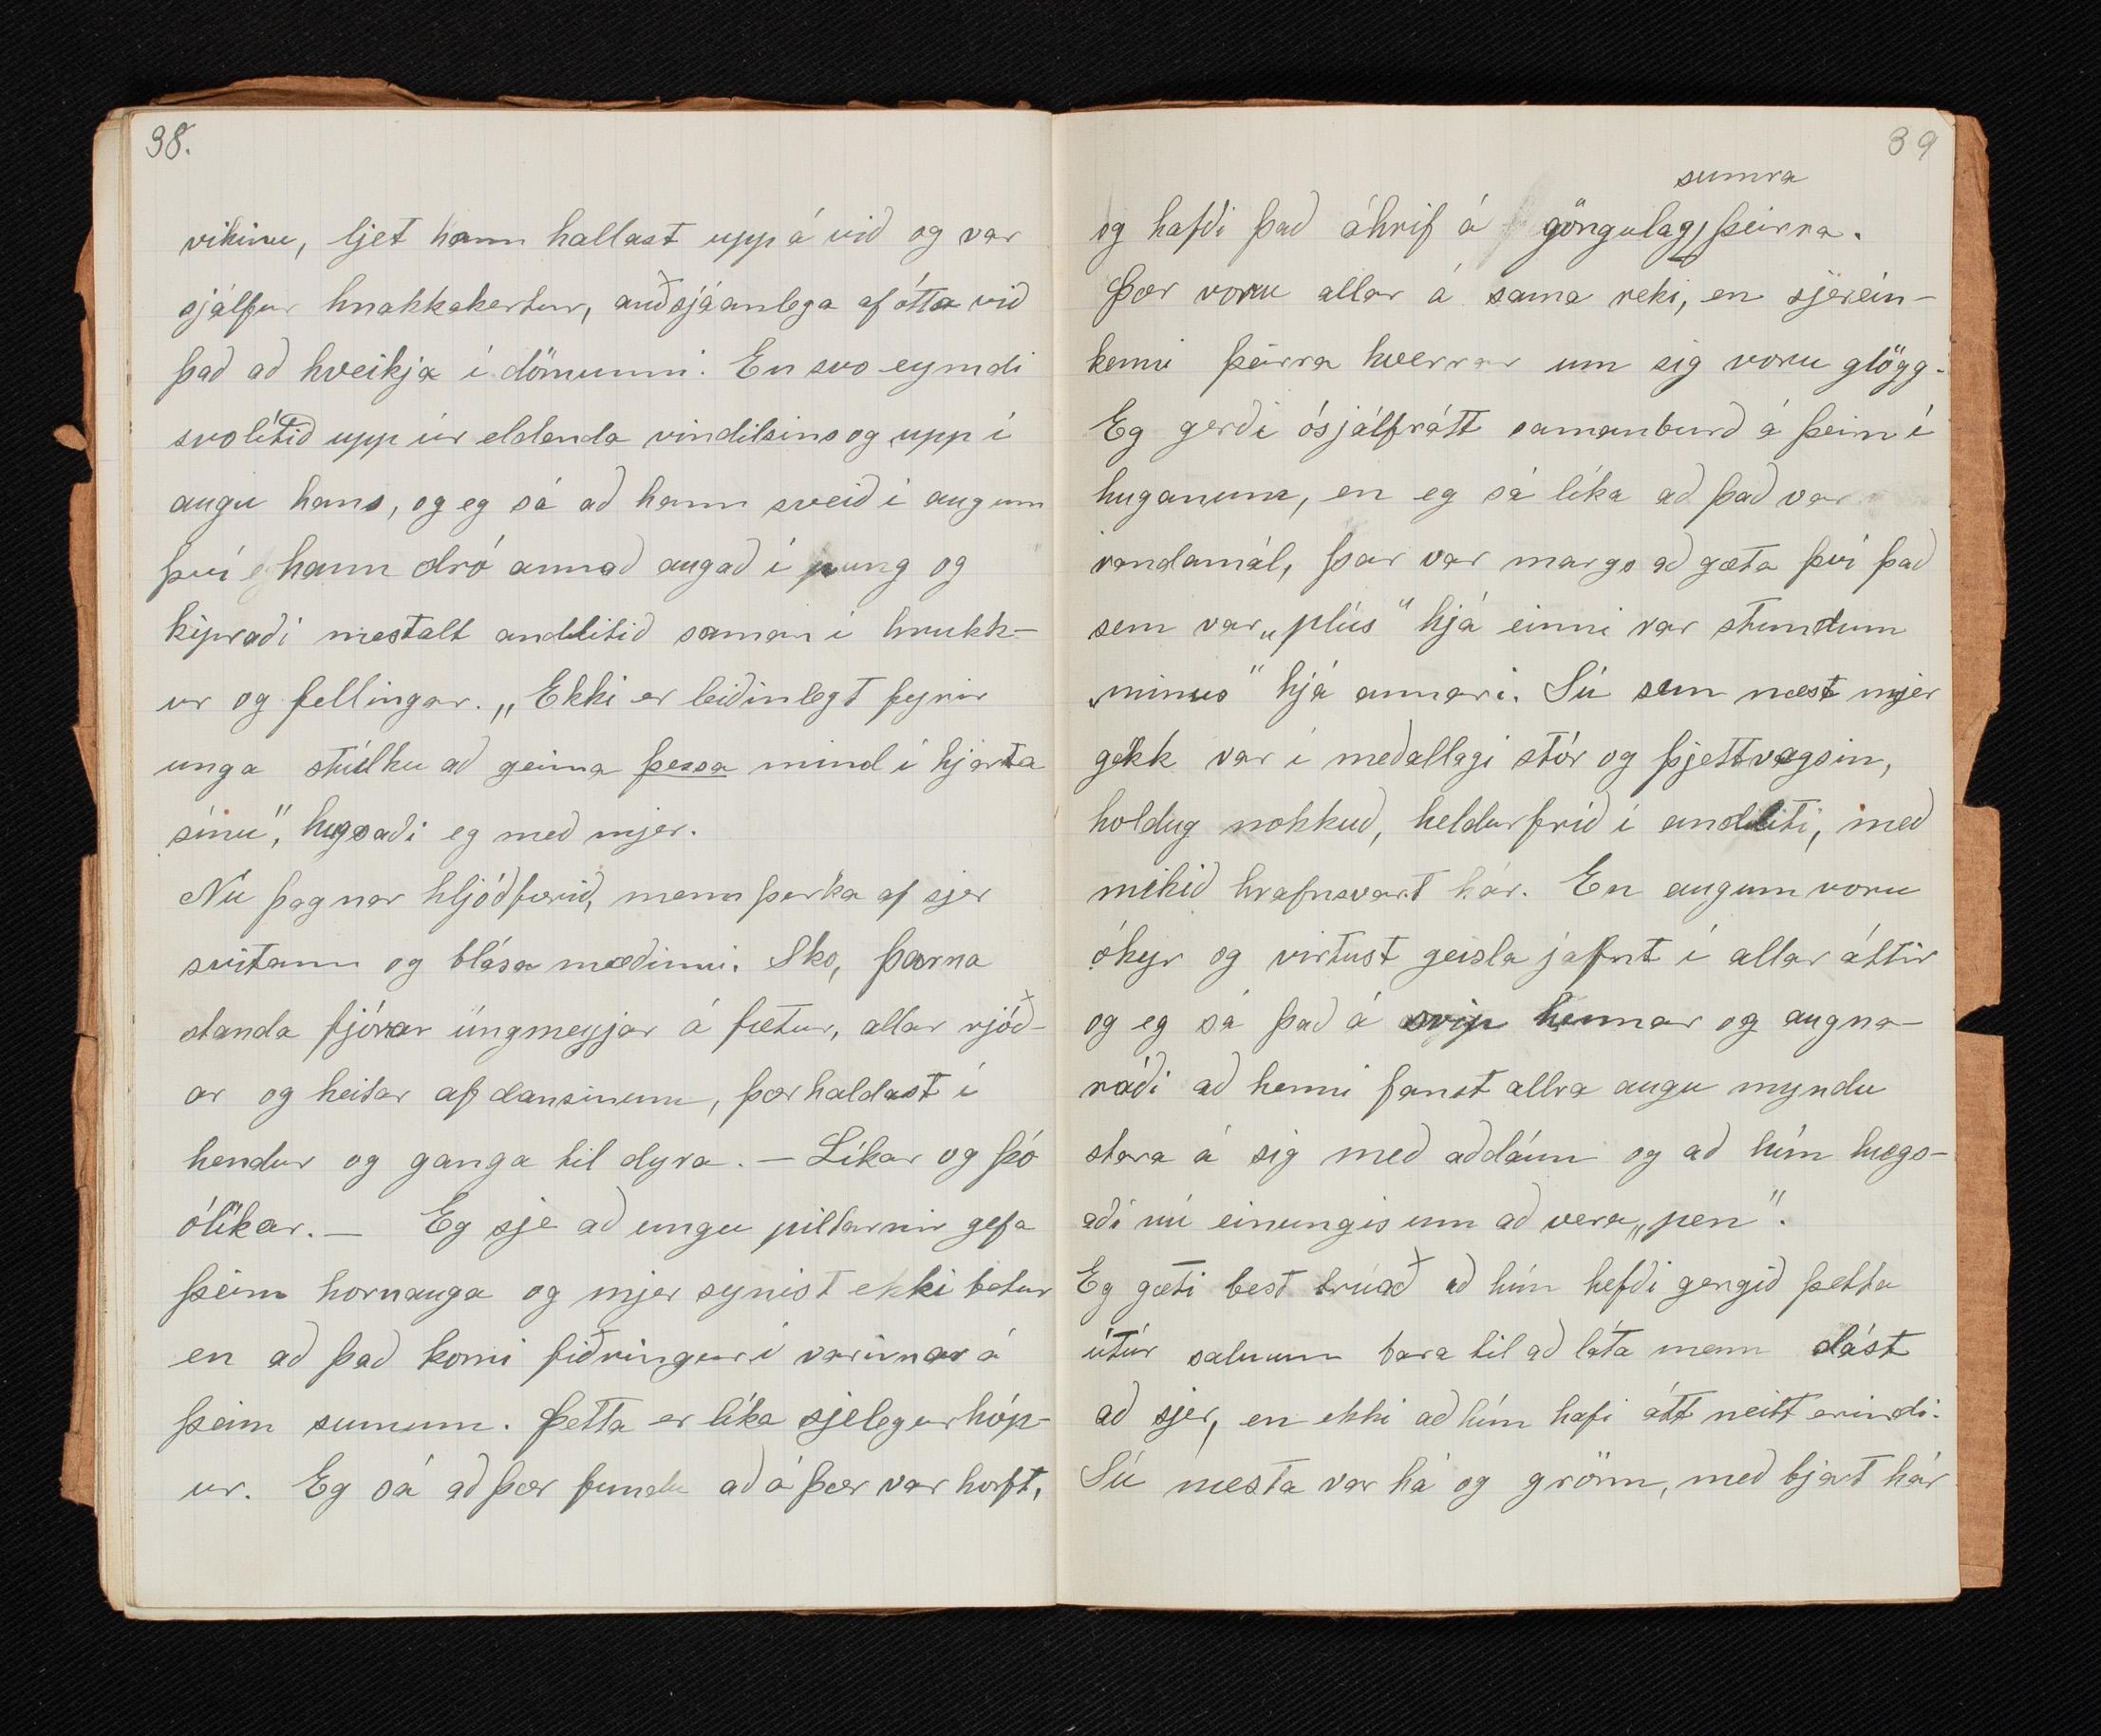 38.
vikinu, ljet hann hallast upp á við og var
sjálfur hnakkakertur, auðsjáanlega af ótta við
það að kveikja í dömunni. En svo eymdi
svolítið upp úr eldenda vindilsins og upp í
augu hans, og eg sá að hann sveið í augum
því hann dró annað augað í pung og
kipraði mestalt andlitið saman í hrukk-
ur og fellingar. „Ekki er leiðinlegt fyrir
unga stúlku að geima þessa mind í hjarta
sínu", hugsaði eg með mjer.
Nú þagnar hljóðfærið, menn þerka af sjer
svitann og blása mæðinni. Sko, þarna
standa fjórar úngmeyjar á fætur, allar rjóð-
ar og heitar af dansinum, þær haldast í
hendur og ganga til dyra. — Líkar og þó
ólíkar. — Eg sje að ungu piltarnir gefa
þeim hornauga og mjer synist ekki betur
en að það komi fiðringur í varirnar á
þeim sumum. Þetta er líka sjelegur hóp-
ur. Eg sá að þær fundu að á þær var horft,
39
sumra
og hafði það áhrif á göngulag þeirra.
Þær voru allar á sama reki, en sjerein-
kenni þeirra hverrar um sig voru glögg.
Eg gerði ósjálfrátt samanburð á þeim í
huganum, en eg sá líka að það var
vandamál, þar var margs að gæta því það
sem var „plús" hjá einni var stundum
„minus" hjá annari. Sú sem næst mjer
gekk var í meðallagi stór og þjettvagsin,
holdug nokkuð, heldur fríð í andliti, með
mikið hrafnsvart hár. En augum voru
ókyr og virtust geisla jafnt í allar áttir
og eg sá það á svip hennar og augna-
ráði að henni fanst allra augu myndu
stara á sig með aðdáun og að hún hugs-
aði nú einungis um að vera „pen".
Eg gæti best trúað að hún hefði gengið þetta
útúr salnum bara til að láta menn dást
að sjer, en ekki að hún hafi átt neitt erindi.
Sú næsta var há og grönn, með bjart hár